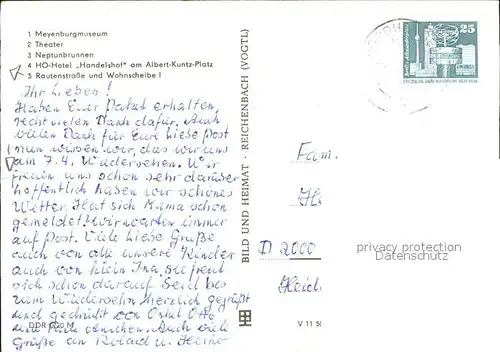 1 Meyenburgmuseum
2 Theater
3 Neptunbrunnen
4 HO-Hotel „Handelshof" am Albert-Kuntz-Platz
5 Rautenstraße und Wohnscheibe I
Ihr Lieben!
Haben Euer Paket erhalten,
recht vielen Dank dafür. Auch
vielen Dank für Eure liebe Post
nun wissen wir, das wir uns
am 7.4. Wiedersehen. Wir
freuen uns schon sehr darüber
hoffentlich haben wir schönes
Wetter. Hat sich Mama schon
gemeldet? wir warten immer
auf Post. Viele liebe Grüße
auch von alle unsere Kinder
auch von klein Ina, sie freut
sich schon darauf. Seid bis
zum Wiedersehn herzlich gegrüßt
und geküßt von Otto
Auch viele
Grüße an Roland u.
DDR 020 M
BILD UND HEIMAT · REICHENBACH (VOGTL)
V 11 50
25
DEUTSCHE DEMOKRATISCHE REPUBLIK
Fam.
D 2000
privacy protection
Datenschutz